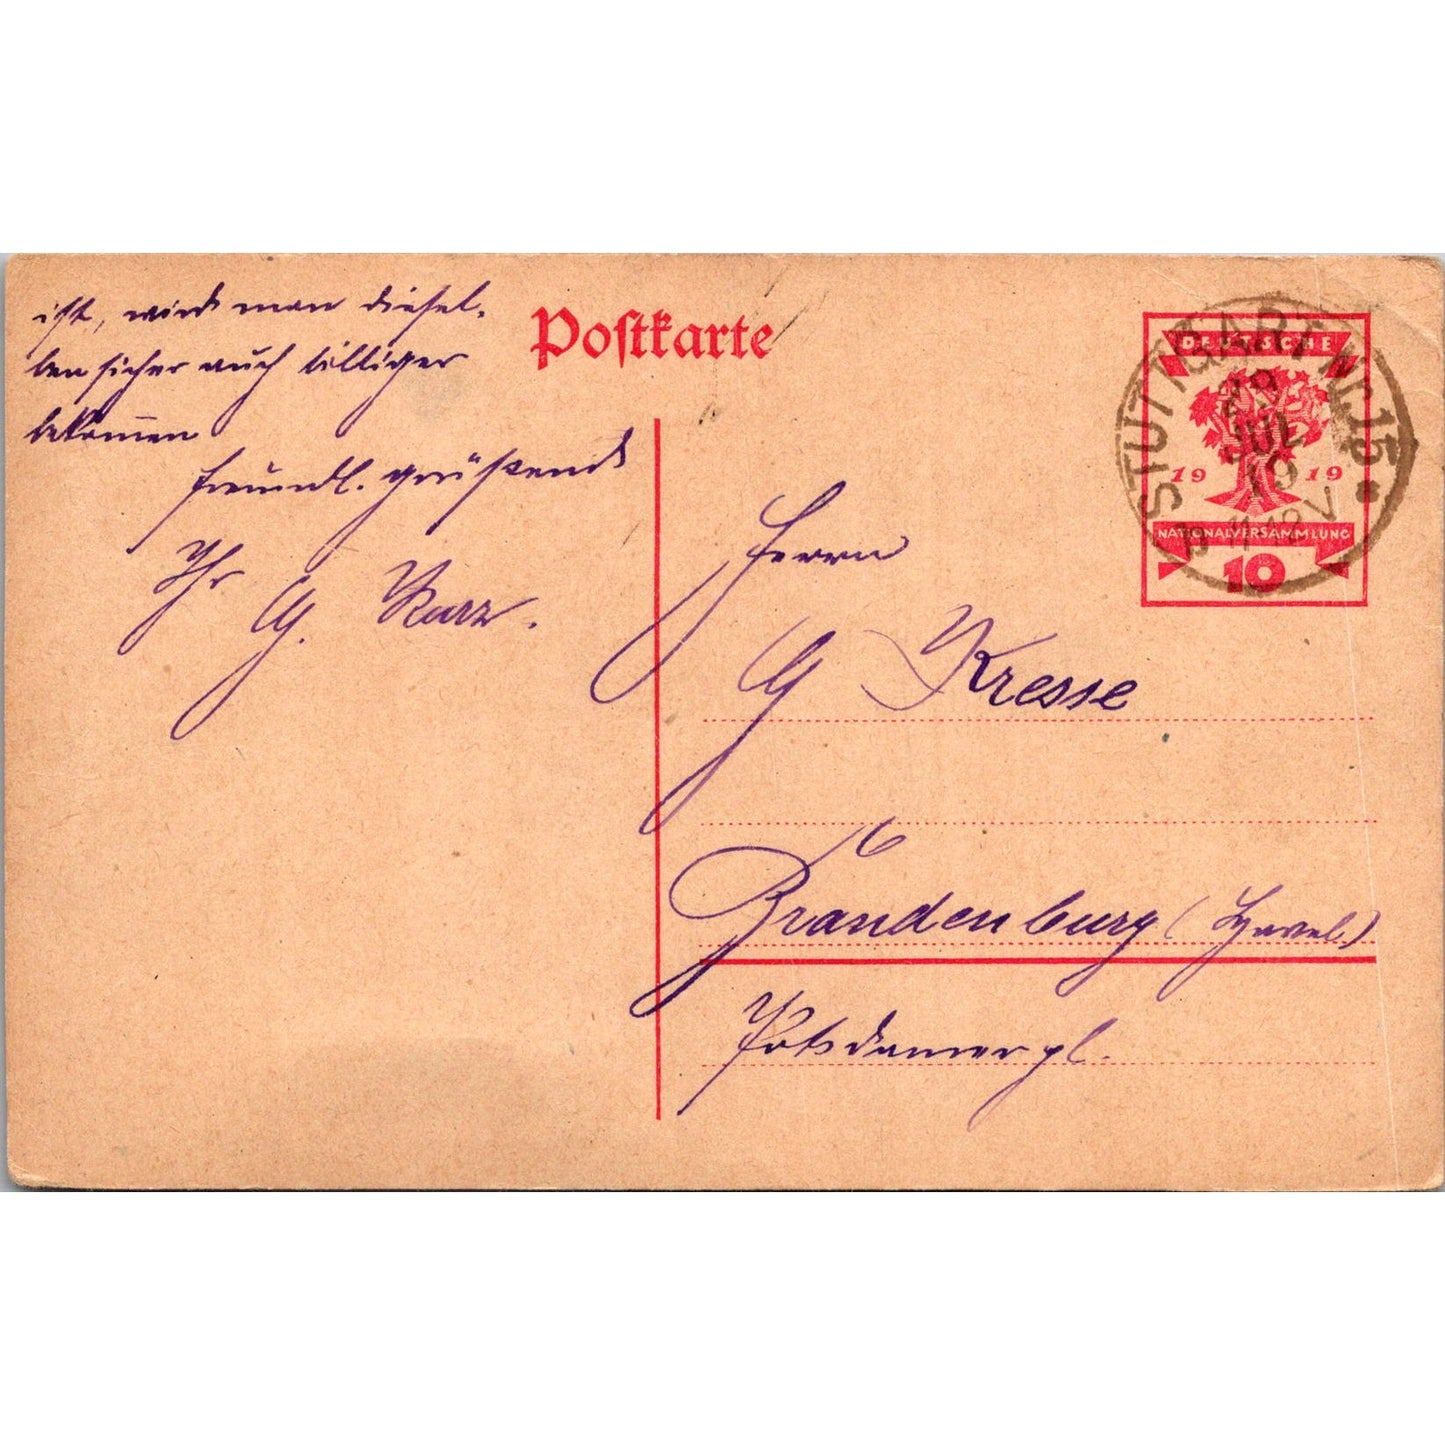 ist, wird man diesel-
ben sicher auch billiger
bekom̄en
freundl. grüßend
Ihr
G. Kurz.
Postkarte
DEUTSCHE
1919
NATIONALVERSAMMLUNG
10
STUTTGART Nr. 15
19
JUL
19
11-12V
Herrn
G Kresse
Brandenburg (Havel)
Potsdamerpl.